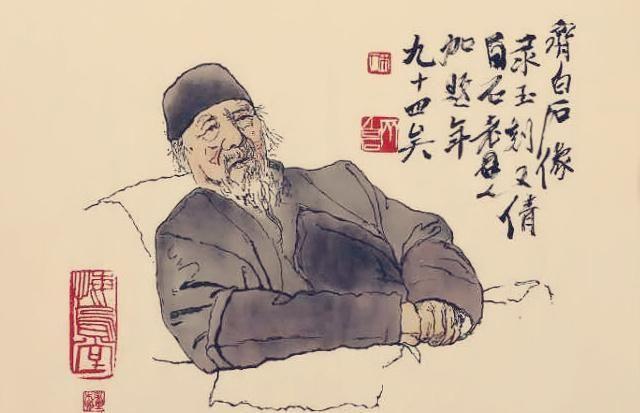 齊白石像
玉刻又倩
白石老人
加墨年
九十四矣